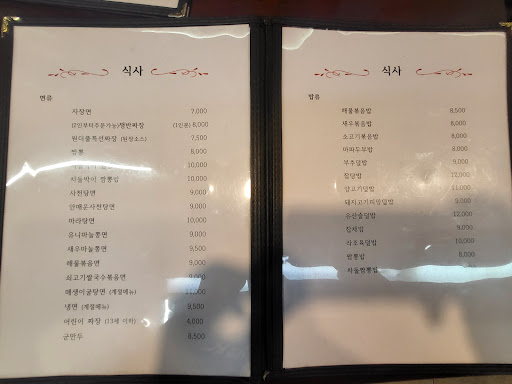 식사
면류
자장면 7,000
(2인부터주문가능)쟁반짜장 (1인분) 8,000
원디풀특선짜장 (된장소스) 7,500
짬뽕 8,000
10,000
차돌박이 짬뽕밥 10,000
사천탕면 9,000
안매운사천탕면 9,000
마라탕면 10,000
유니마늘쫑면 9,000
새우마늘쫑면 9,500
해물볶음면 9,000
쇠고기쌀국수볶음면 9,000
매생이굴탕면 (계절메뉴)
냉면 (계절메뉴) 9,500
어린이 짜장 (13세 이하) 4,000
군만두 8,500
식사
밥류
해물볶음밥 8,500
새우볶음밥 8,000
소고기볶음밥 8,000
마파두부밥 8,000
부추덮밥 9,000
잡탕밥 12,000
양고기덮밥 11,000
돼지고기피망덮밥 9,000
유산슬덮밥 12,000
잡채밥 9,000
라조육덮밥 10,000
짬뽕밥 8,000
차돌짬뽕밥